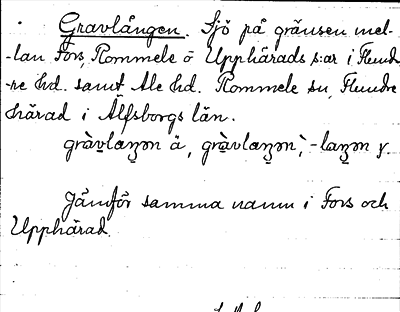 Gravlången. Sjö på gränsen mel-
-lan Fors, Rommele o Upphärads s:ar i Flund-
-re hd. samt Ale hd. Rommele sn, Flundre
härad i Älfsborgs län.
gràvlaŋən ä, gràvlaŋən, -laŋən y.
Jämför samma namn i Fors och
Upphärad.